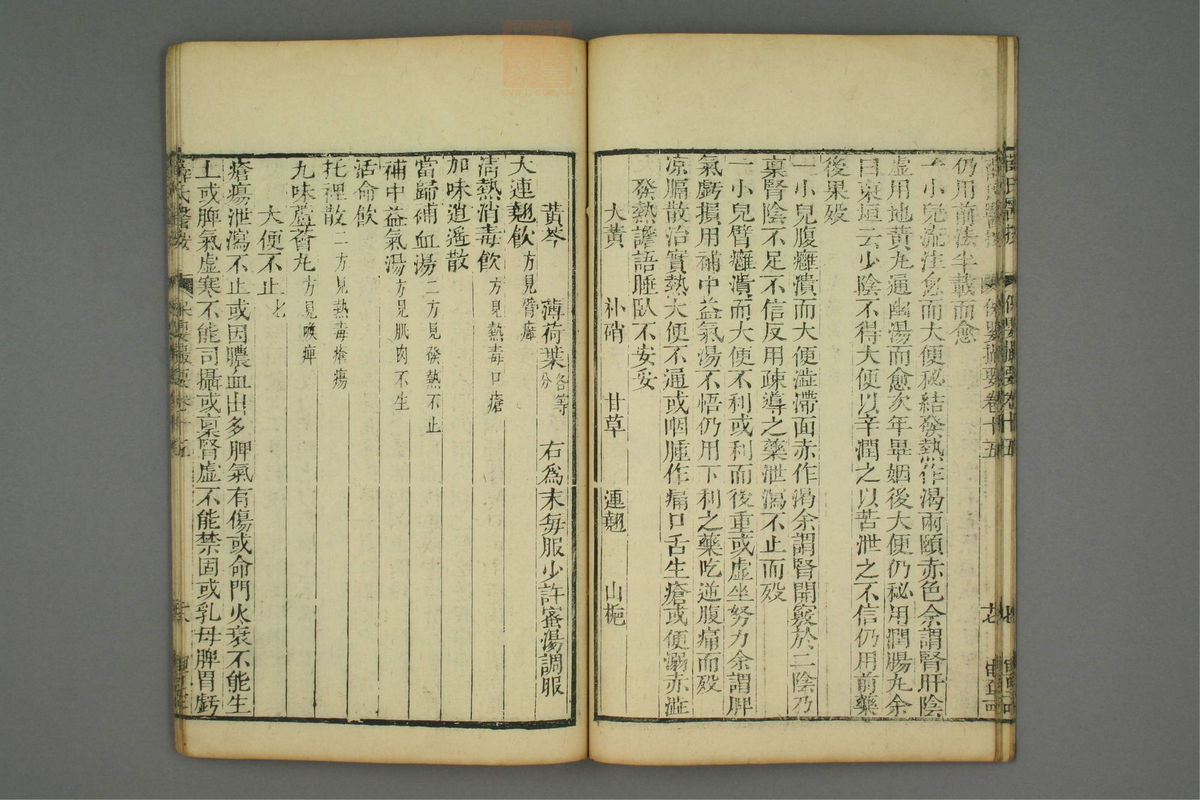 仍用前法半載而愈
一小兒流注愈而大便秘結發熱作渴兩頤赤色余謂腎肝陰
虛用地黃丸通幽湯而愈次年畢姻後大便仍秘用潤腸丸余
曰東垣云少陰不得大便以辛潤之以苦泄之不信仍用前藥
後果歿
一小兒腹癰潰而大便澁滯面赤作渴余謂腎開竅於二陰乃
稟腎陰不足不信反用疎導之藥泄瀉不止而歿
一小兒臂癰潰而大便不利或利而後重或虛坐努力余謂脾
氣虧損用補中益氣湯不悟仍用下利之藥吃逆腹痛而歿
凉膈散治實熱大便不通或咽腫作痛口舌生瘡或便溺赤澁
發熱譫語睡臥不安妥
大黃 朴硝 甘草 連翹 山梔
黃芩 薄荷葉各等分 右為末每服少許蜜湯調服
大連翹飲方見臂癰
清熱消毒飲方見熱毒口瘡
加味逍遙散
當歸補血湯二方見發熱不止
補中益氣湯方見肌肉不生
活命飲
托裡散二方見熱毒瘡瘍
九味蘆薈丸方見喉痺
大便不止七
瘡瘍泄瀉不止或因膿血出多脾氣有傷或命門火衰不能生
土或脾氣虛寒不能司攝或稟腎虛不能禁固或乳母脾胃虧